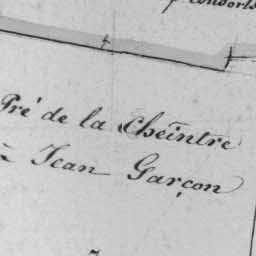 Pré de la Cheintre
à Jean Garçon